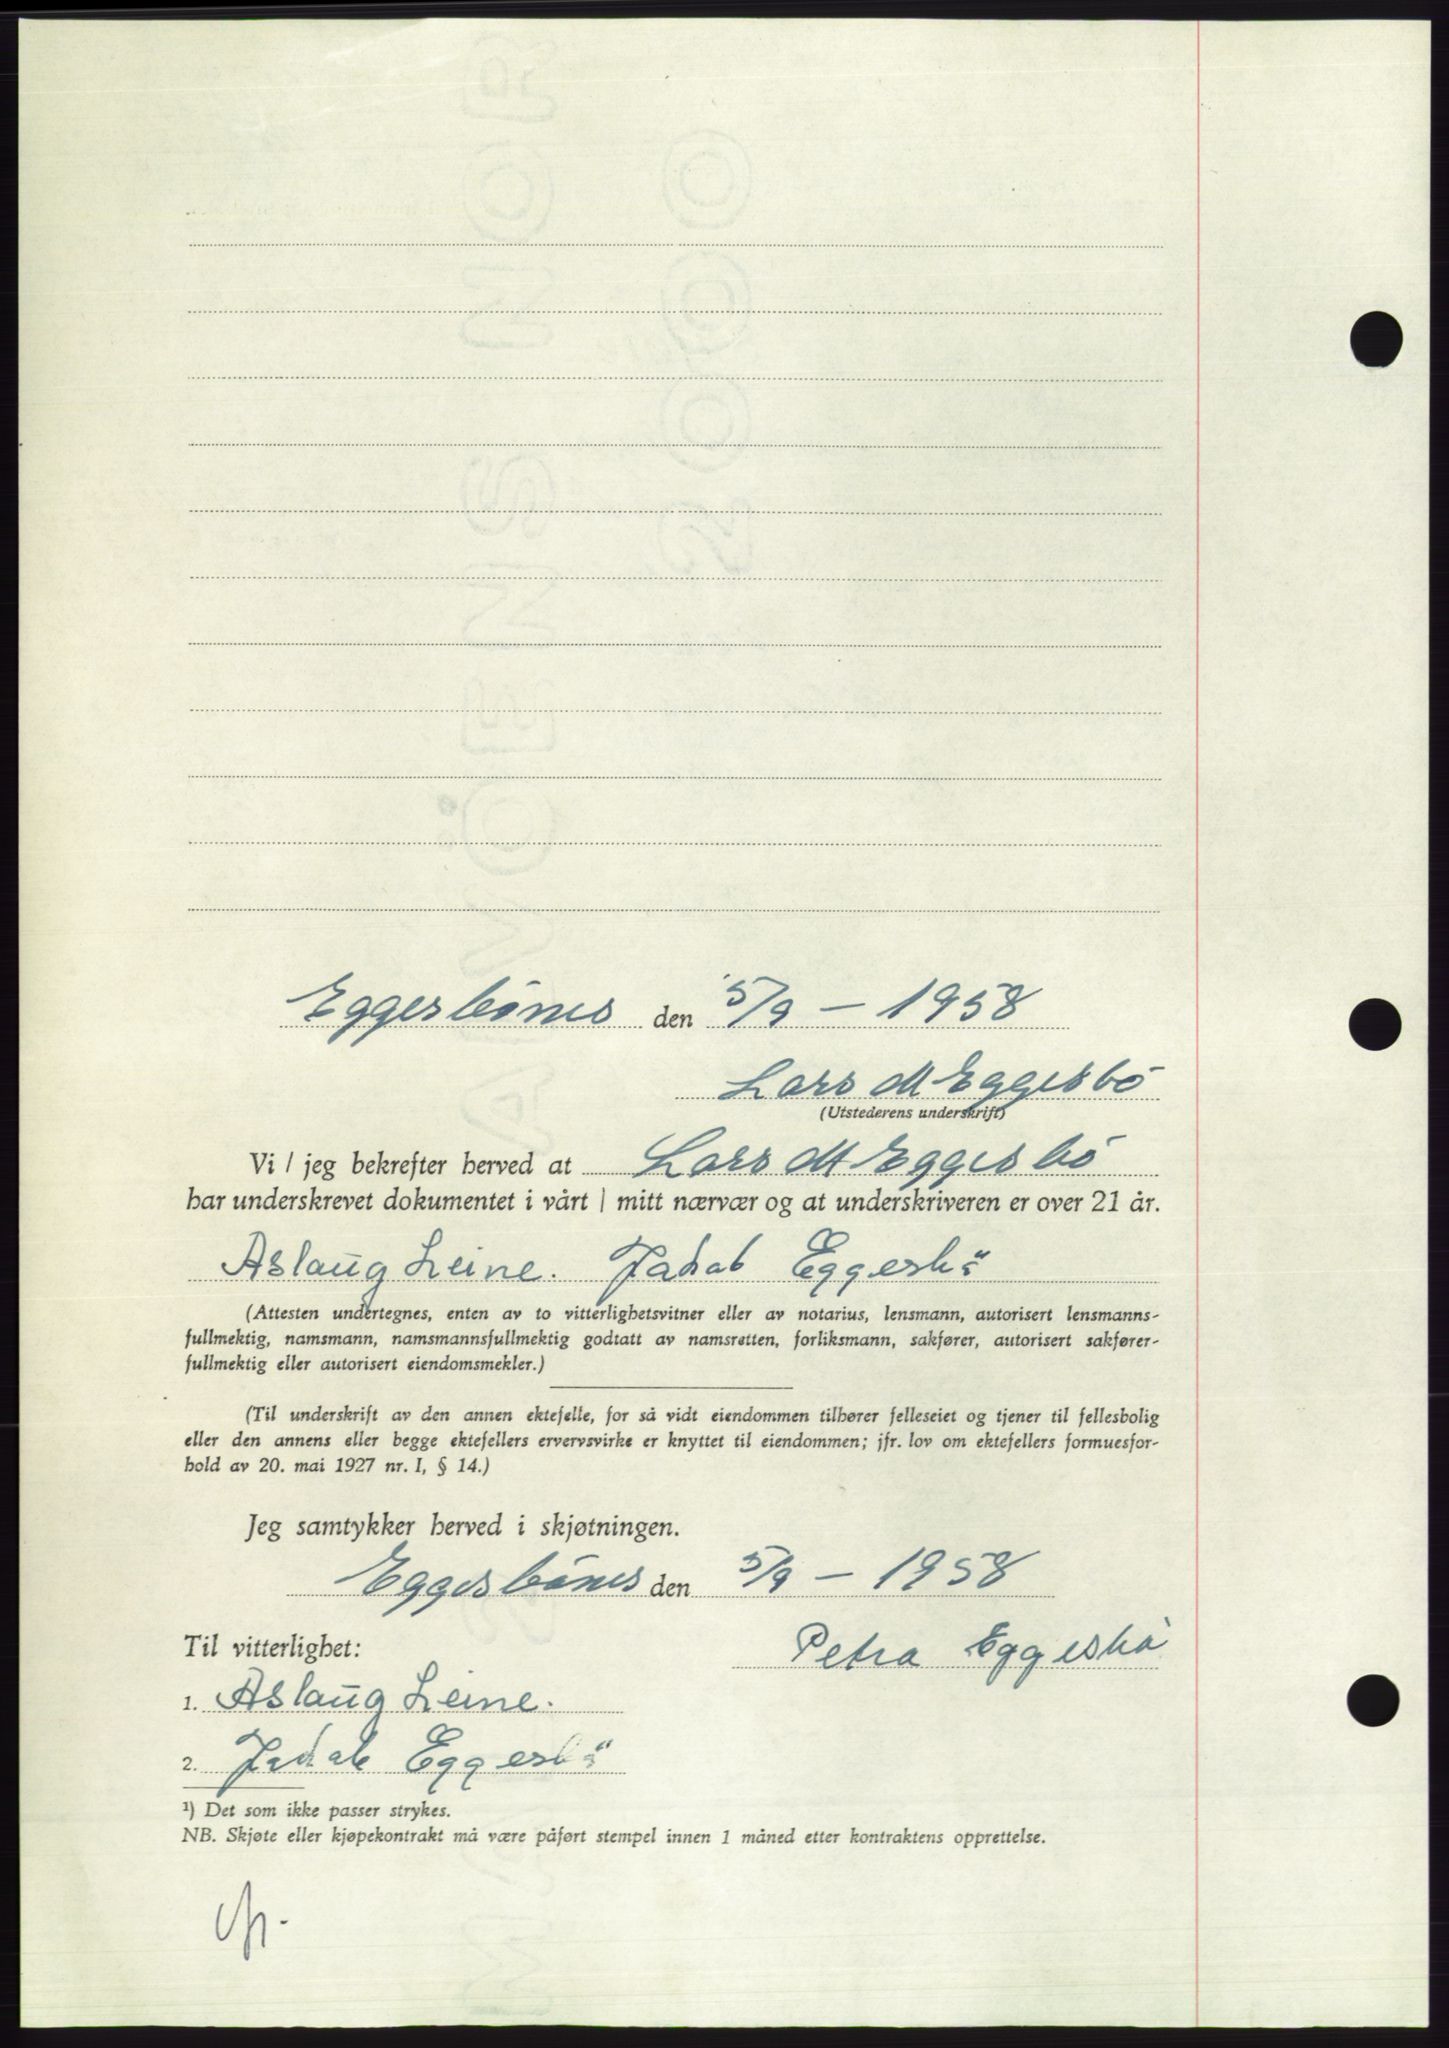 Eggesbönes den 5/9 – 1958
Lars M Eggesbö
(Utstederens underskrift)
Vi / jeg bekrefter herved at Lars M Eggesbö
har underskrevet dokumentet i vårt / mitt nærvær og at underskriveren er over 21 år.
Aslaug Leine. Jakob Eggesbö
(Attesten undertegnes, enten av to vitterlighetsvitner eller av notarius, lensmann, autorisert lensmanns-
fullmektig, namsmann, namsmannsfullmektig godtatt av namsretten, forliksmann, sakfører, autorisert sakfører-
fullmektig eller autorisert eiendomsmekler.)
(Til underskrift av den annen ektefelle, for så vidt eiendommen tilhører felleseiet og tjener til fellesbolig
eller den annens eller begge ektefellers ervervsvirke er knyttet til eiendommen; jfr. lov om ektefellers formuesfor-
hold av 20. mai 1927 nr. I, § 14.)
Jeg samtykker herved i skjøtningen.
Eggesbönes den 5/9 – 1958
Til vitterlighet:
Petra Eggesbö
1. Aslaug Leine.
2. Jakob Eggesbö
¹) Det som ikke passer strykes.
NB. Skjøte eller kjøpekontrakt må være påført stempel innen 1 måned etter kontraktens opprettelse.